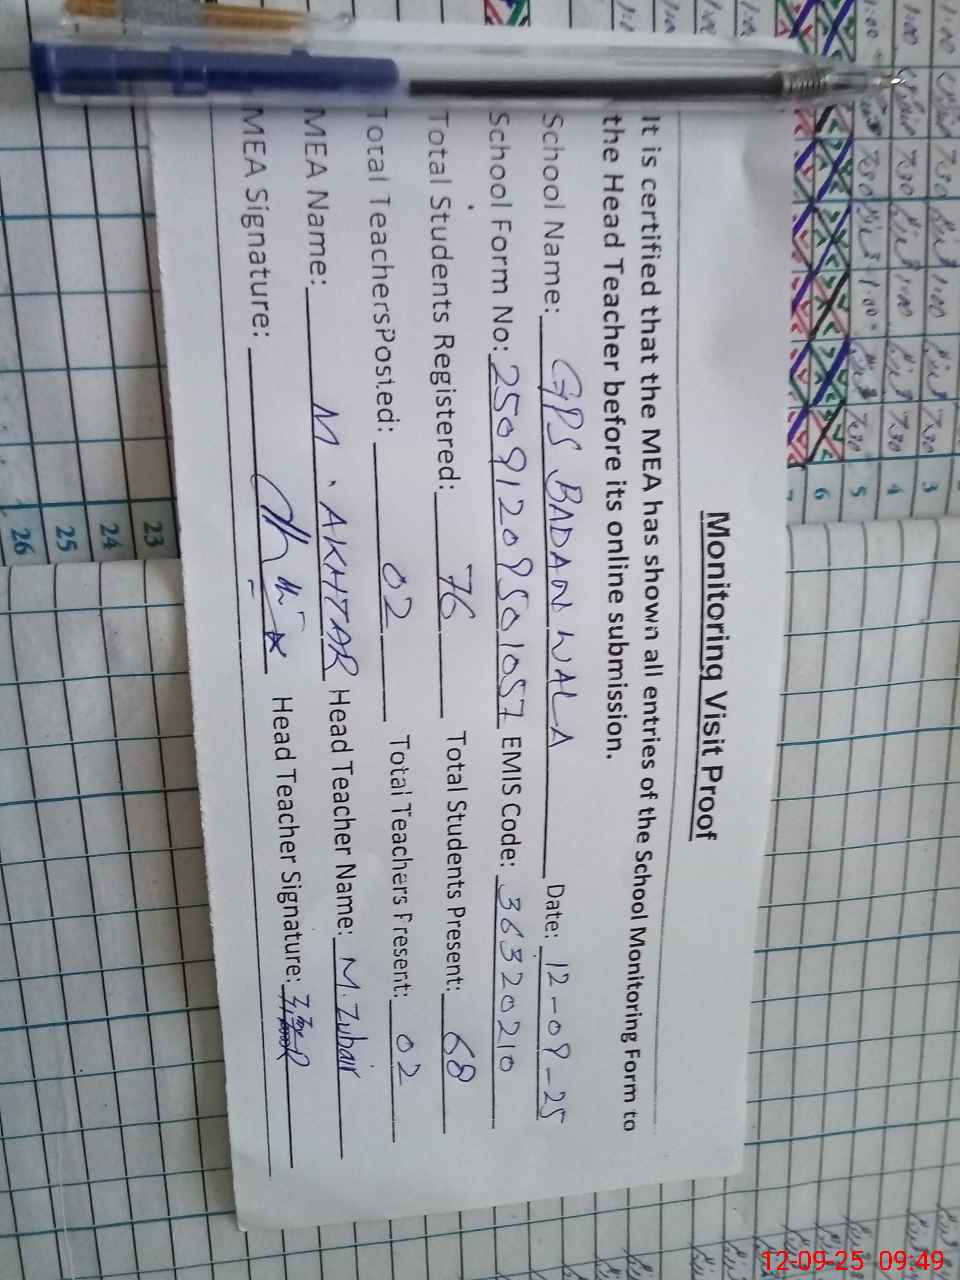 Monitoring Visit Proof
It is certified that the MEA has shown all entries of the School Monitoring Form to
the Head Teacher before its online submission.
School Name: GPS BADAN WALA Date: 12-09-25
School Form No: 25091209501057 EMIS Code: 36320210
Total Students Registered: 76 Total Students Present: 68
Total Teachers Posted: 02 Total Teachers Present: 02
MEA Name: M. AKHTAR Head Teacher Name: M. Zubair
MEA Signature: Head Teacher Signature:
3
4
5
6
7
23
24
25
26
1:00 7:30 1:00 7:30
1:00 7:30 1:00 7:30
1:00 7:30 1:00 7:30
12-09-25 09:49